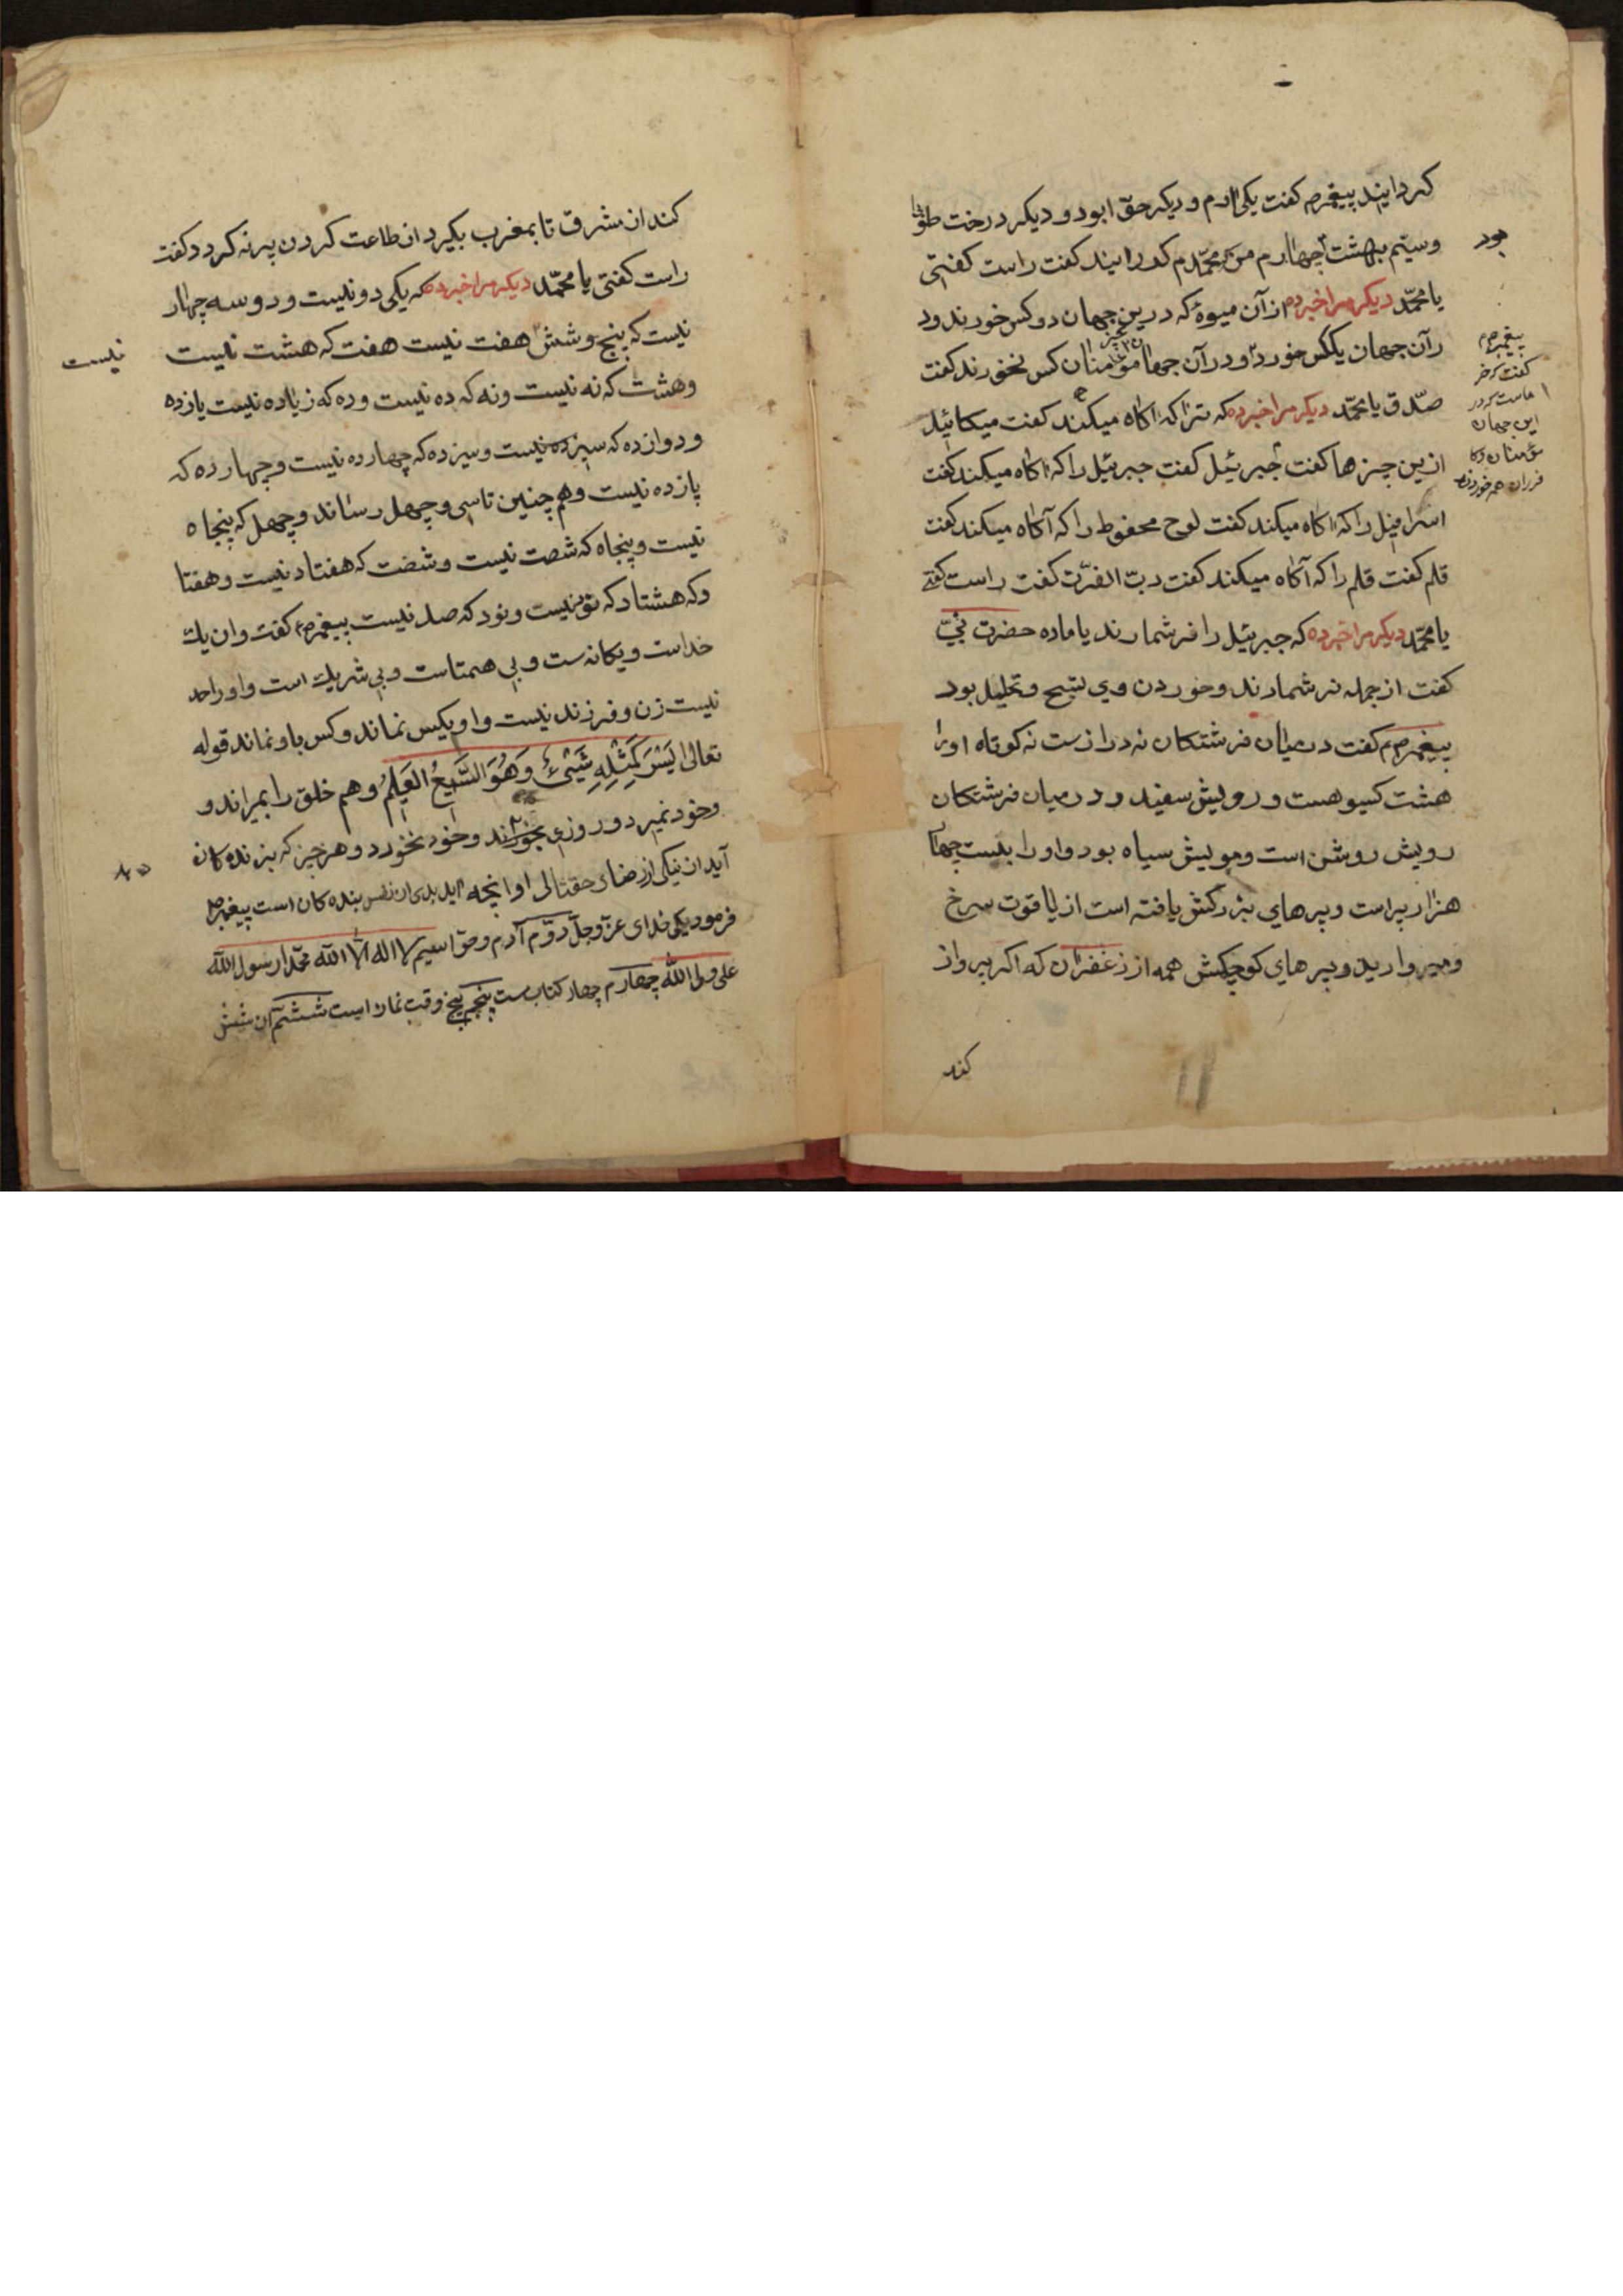 کردانیند پیغمرم کفت یکی آدم و دیکر حوّا بود و دیکر درخت طوبا
بود
وسیّم بهشت چهارم من که محمّدم کردانیند کفت راست کفتی
یا محمّد دیکر مرا خبر ده از آن میوهٔ که درین جهان دو کس خورند ود
رآن جهان یککس خورد و در آن جهان مؤمنان کس نخورند کفت
پیغمبرم
کفت که خر
ماست که در
این جهان
مؤمنان و کا
فران هم خوردند
صدّق یا محمّد دیکر مرا خبر ده که ترا که آکاه میکند کفت میکائیل
ازین چیزها کفت جبرئیل کفت جبرئیل را که آکاه میکند کفت
اسرافیل را که آکاه میکند کفت لوح محفوط را که آکاه میکند کفت
قلم کفت قلم را که آکاه میکند کفت ربّ العزّت کفت راست کفتی
یا محمّد دیکر مرا خبر ده که جبرئیل را نر شمارند یا ماده حضرت نبیّ
کفت از جمله نر شمارند و خوردن وی تسبیح و تحلیل بود
پیغمرم کفت در میان فرشتکان نه درازست نه کوتاه اورا
هشت کیسو هست و رویش سفید و در میان فرشتکان
رویش روشن است و مویش سیاه بود و او را بیست چهار
هزار پر است و پرهای بزرکش یافته است از یاقوت سرخ
و مروارید و پرهای کوچکش همه از زعفران که اکر پرواز
کند
کند از مشرق تا بمغرب بکیرد از طاعت کردن پر نه کردد کفت
راست کفتی یا محمّد دیکر مرا خبر ده که یکی دو نیست و دو سه چهار
نیست که پنج و شش هفت نیست هفت که هشت نیست
نیست
و هشت که نه نیست و نه که ده نیست و ده که زیاده نیست یازده
و دوازده که سیزده نیست و سیزده که چهارده نیست و چهارده که
پازده نیست و هم چنین تا سی و چهل رساند و چهل که پنجاه
نیست و پنجاه که شصت نیست و شصت که هفتاد نیست و هفتا
د که هشتاد که نود نیست و نود که صد نیست پیغمرم کفت و ان یك
خداست و یکانه ست و بی همتاست و بی شریك است و او را حد
نیست زن و فرزند نیست و او بکس نماند و کس باو نماند قوله
تعالی لَیْسَ کَمِثْلِهِ شَیْئٌ وَهُوَ السَّمِیعُ العَلِیمُ و هم خلق را بمیراند و
و خود نمیرد و روزی بخوراند و خود نخورد و هر چیز که بر بنده کان
آید از نیکی از رضای حقتالی او انچه آید بدی از نفس بنده کان است پیغمبر
فرمود یکی خدای عزّوجلّ دوّم آدم و حوّا سیم لا اله الّا الله محمّدا رسول الله
علی ولی الله چهارم چهار کتاب ست پنجم پنج وقت نماز است ششم آن شش